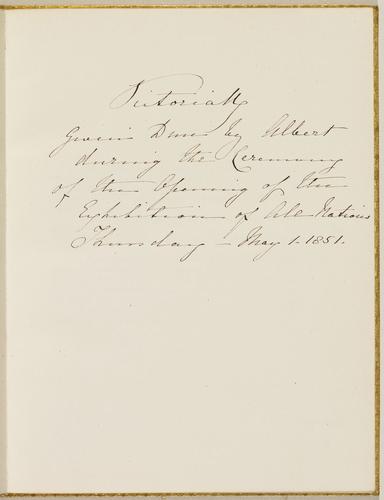 Victoria R
Given Duer by Albert
during the Ceremony
of the Opening of the
Exhibition of All Nations
Thursday – May 1. 1851.